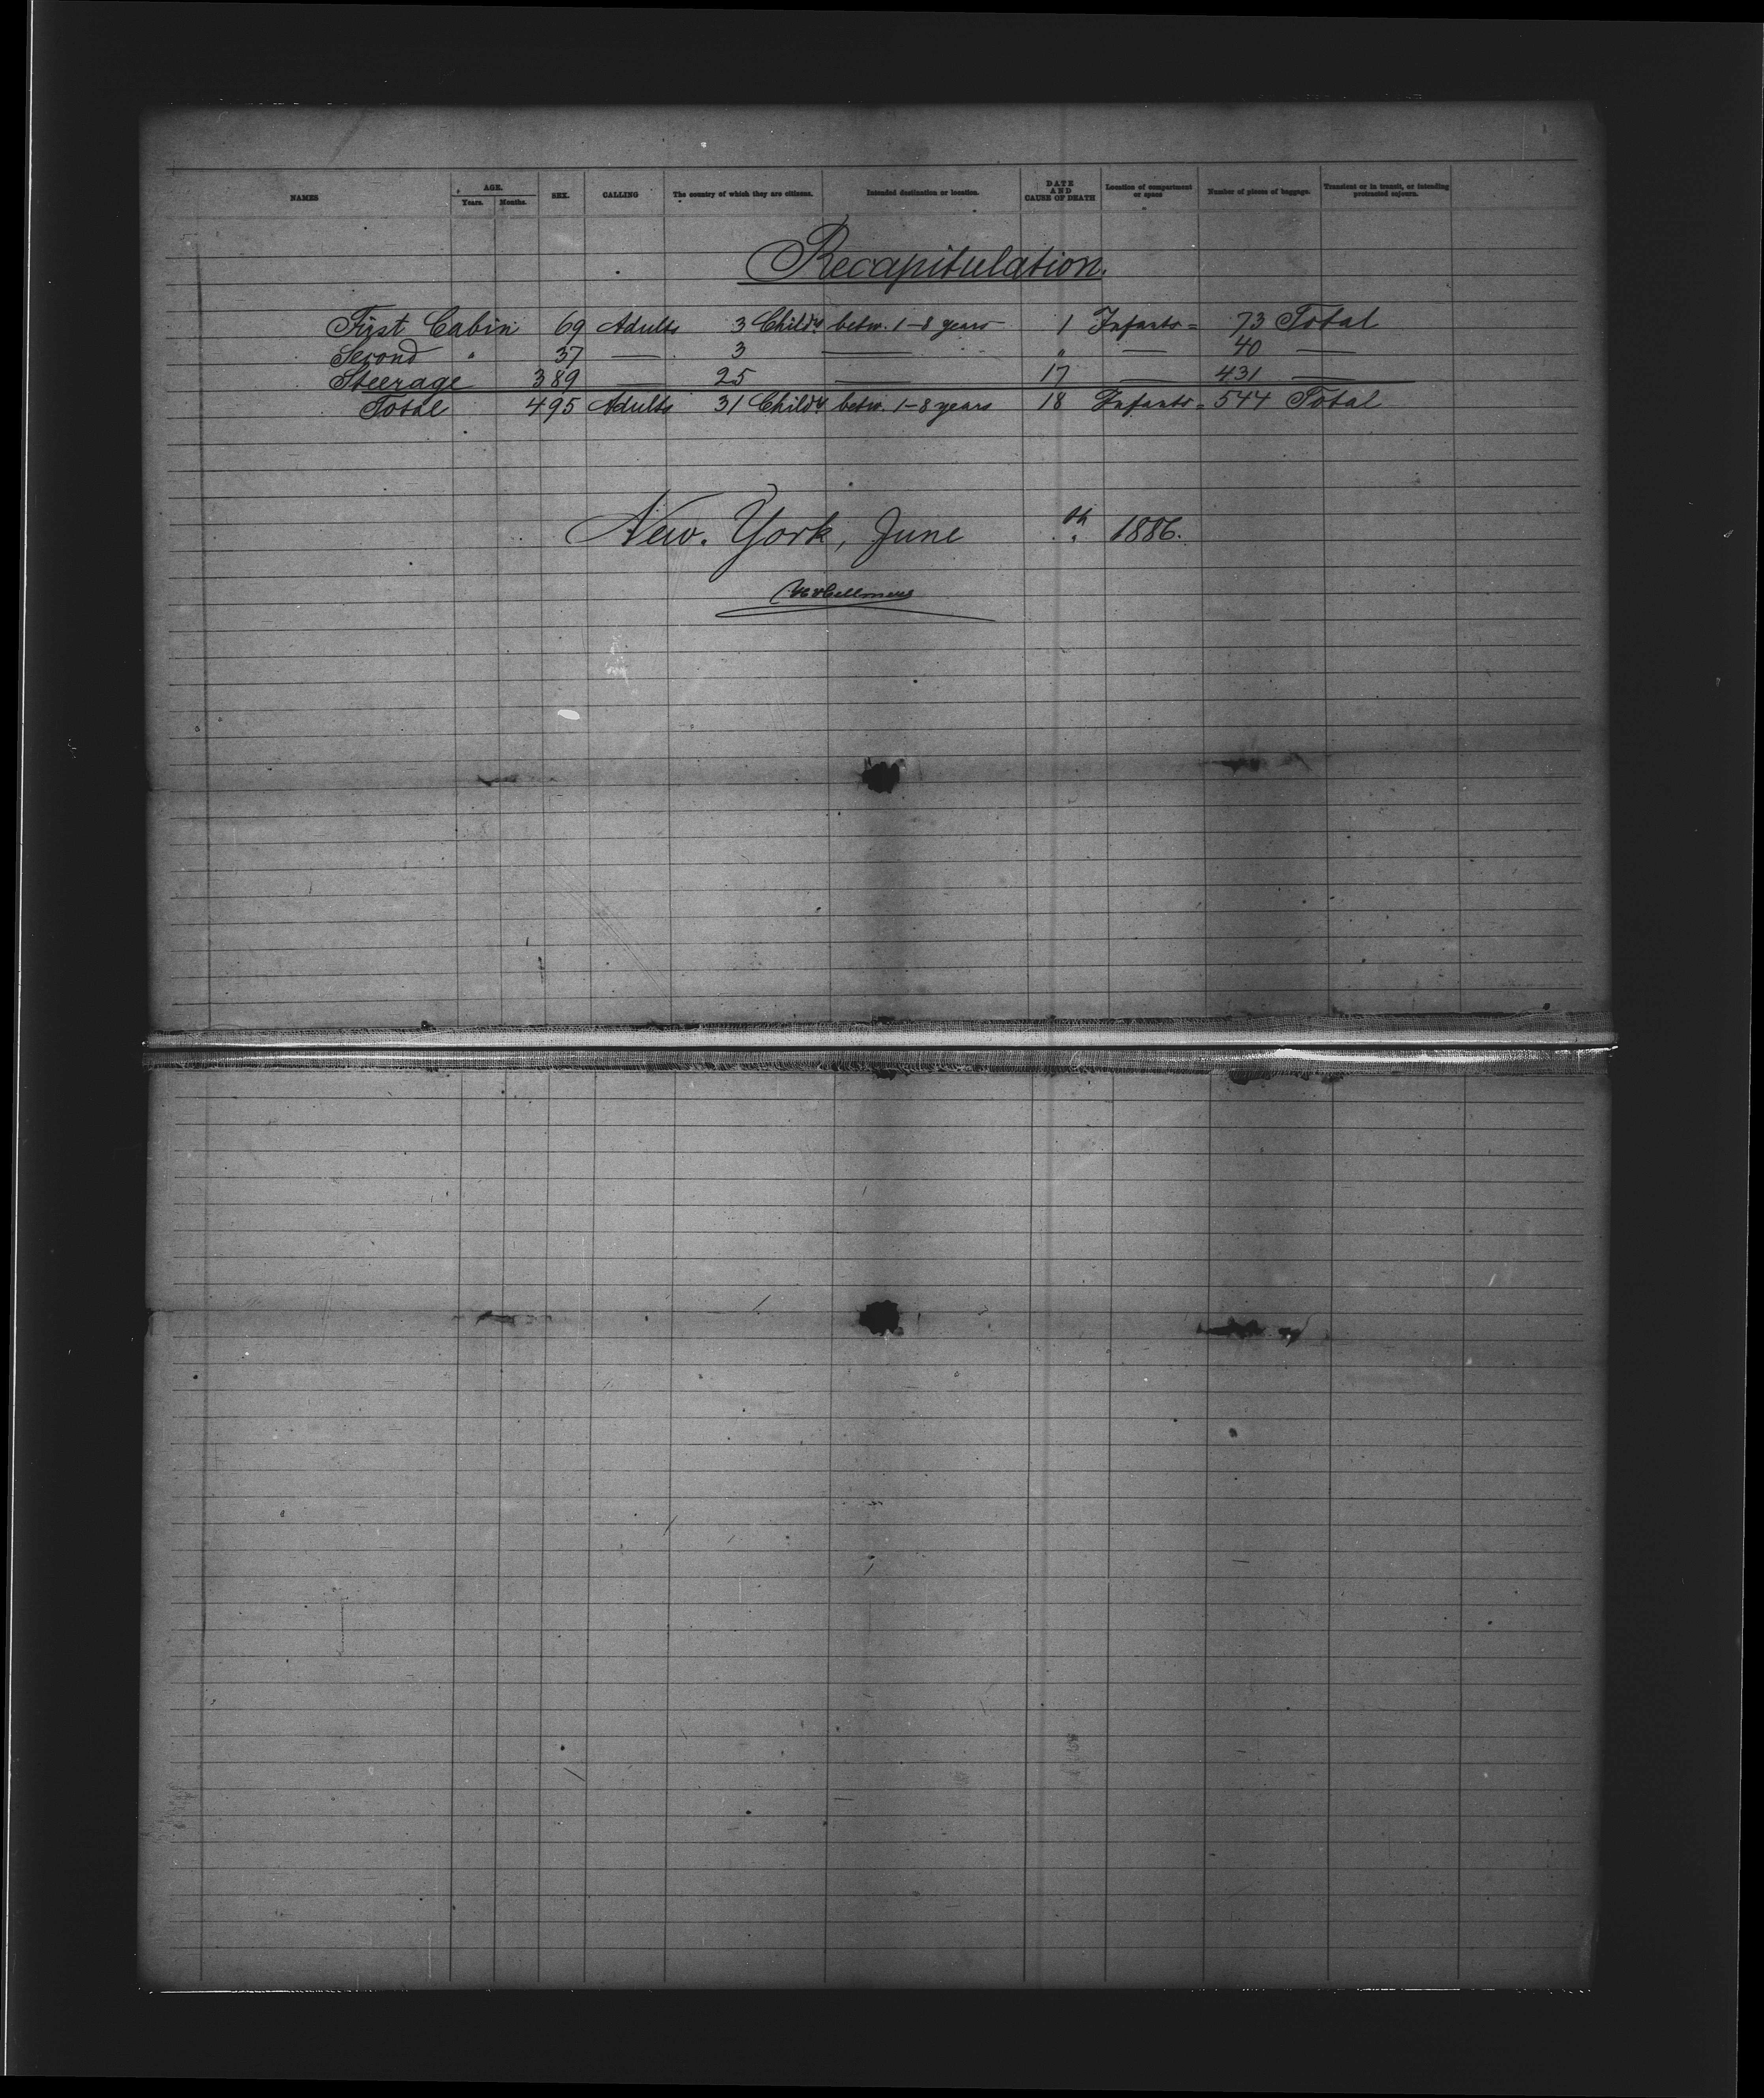 NAMES AGE. SEX. CALLING The country of which they are citizens. Intended destination or location. DATE AND CAUSE OF DEATH Location of compartment or space Number of pieces of baggage. Transient or in transit, or intending protracted sojourn.
Years. Months.
Recapitulation.
First Cabin 69 Adults 3 Childr betw. 1-8 years 1 Infants = 73 Total
Second " 37 — 3 — " — 40 —
Steerage 389 — 25 — 17 — 431 —
Total 495 Adults 31 Childr betw. 1-8 years 18 Infants = 544 Total
New. York, June th 1886.